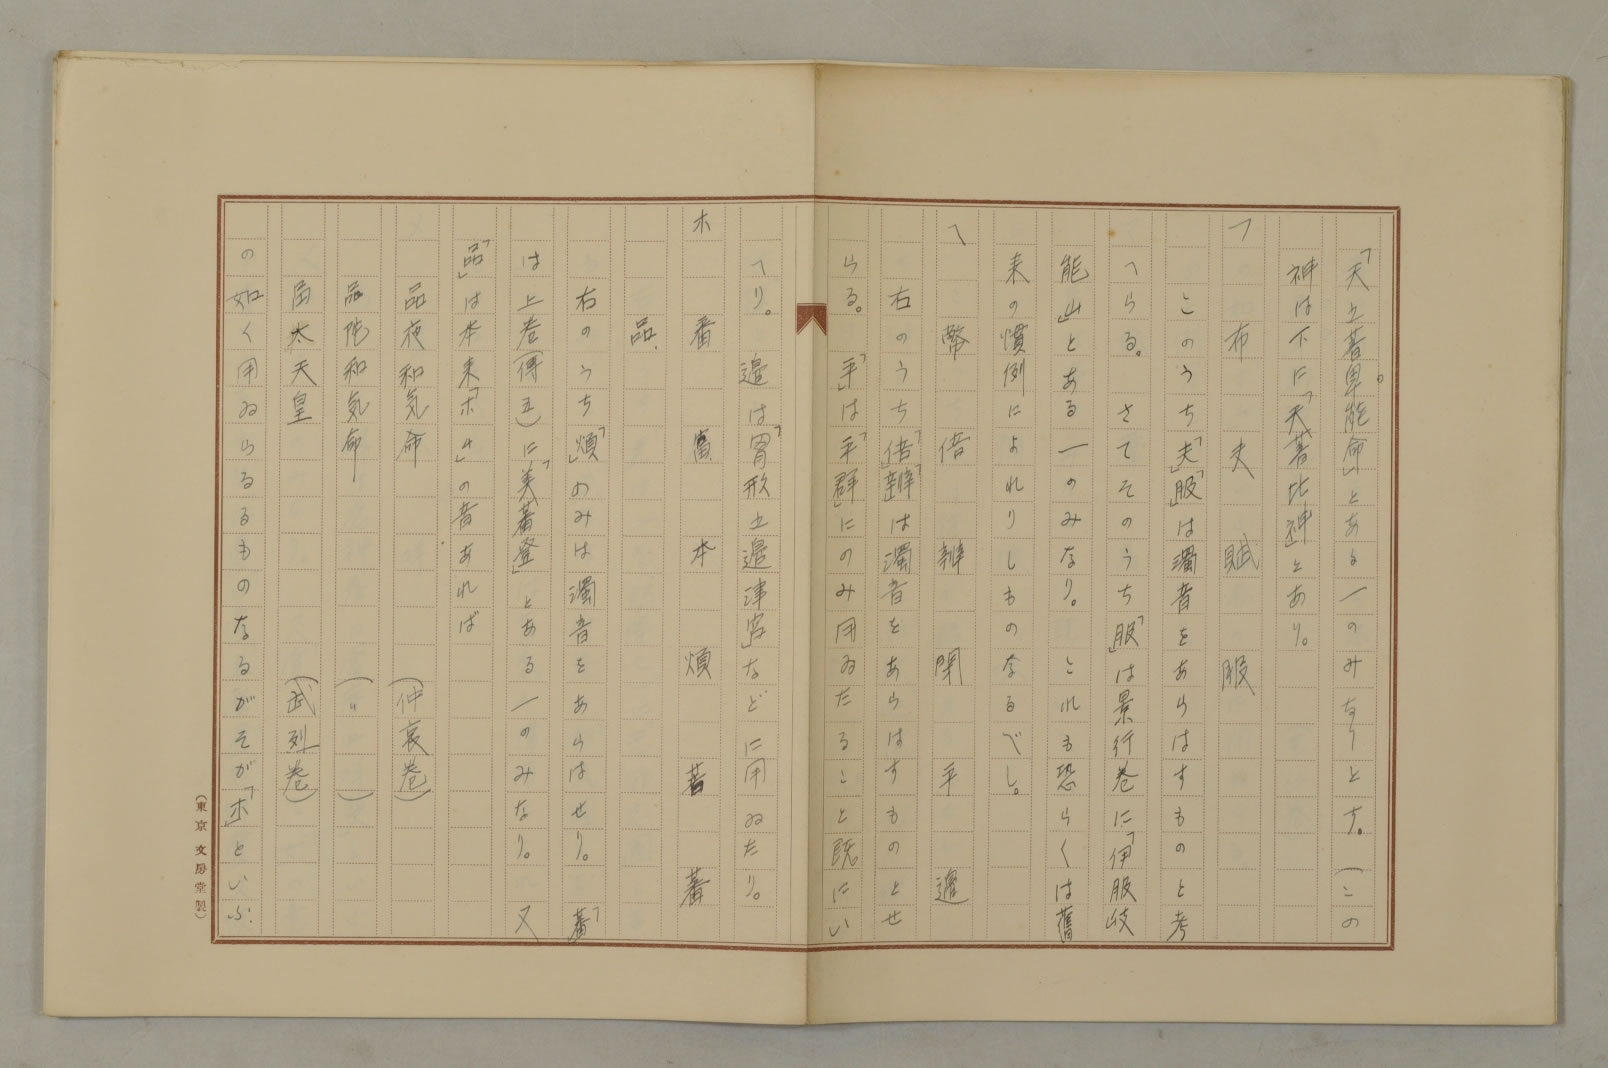 「天之菩卑能命」とある一のみなりとす。（この
神は下に「天菩比神」とあり。
フ　布　夫　賦　服
このうち「夫」「服」は濁音をあらはすものと考
へらる。さてそのうち「服」は景行巻に「伊服岐
能山」とある一のみなり。これも恐らくは舊
来の慣例によれりしものなるべし。
ヘ　幣　倍　辨　閇　平　邊
右のうち「倍」「辨」は濁音をあらはすものとせ
らる。「平」は「平群」にのみ用ゐたること既にい
へり。邉は「胷形之邉津宮」などに用ゐたり。
ホ　番　富　本　煩　菩　蕃
品
右のうち「煩」のみは濁音をあらはせり。「蕃」
は上巻（傳五）に「美蕃登」とある一のみなり。又
「品」は本来「ホム」の音あれば
品夜和気命　（仲哀巻）
品陀和気命　（〃）
品太天皇　（武列巻）
の如く用ゐらるるものなるがそが「ホ」といふ
（東京文房堂製）